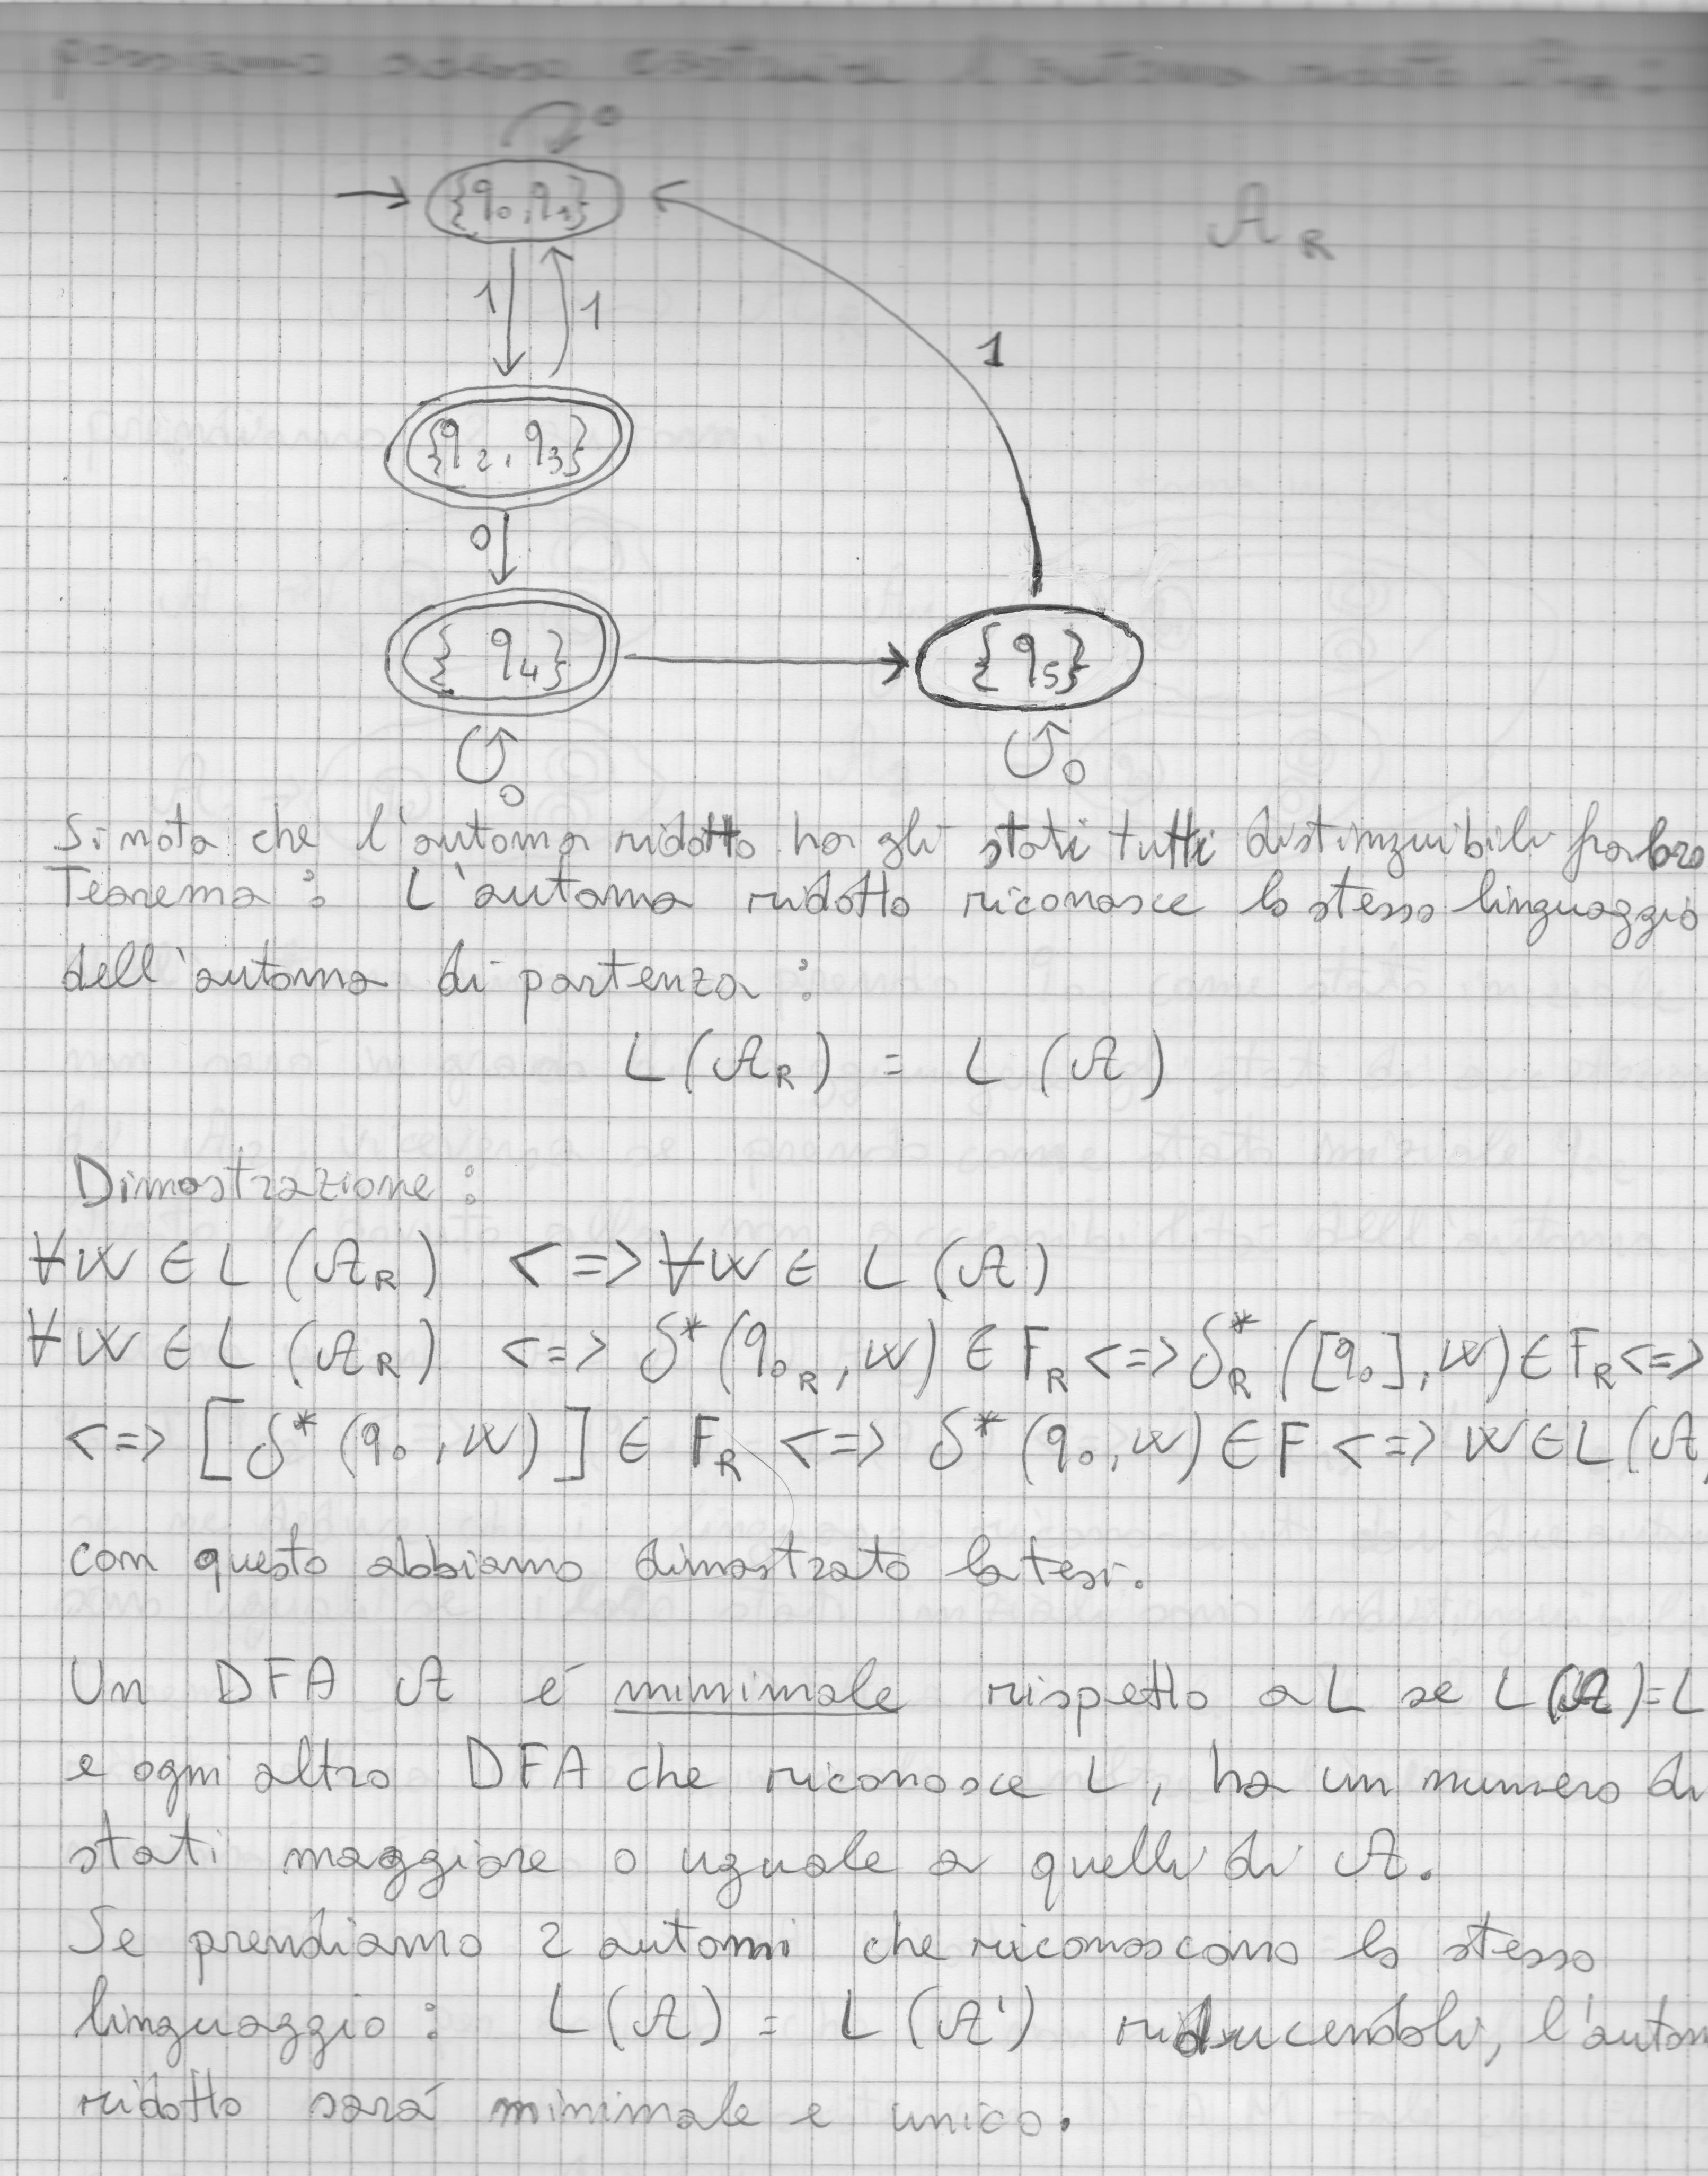 possiamo adesso costruire l'automa ridotto
0
{q₀,q₁}
𝒜_R
1 1
1
{q₂, q₃}
0
{q₄}
{q₅}
0
0
Si nota che l'automa ridotto ha gli stati tutti distinguibili fra loro
Teorema: L'automa ridotto riconosce lo stesso linguaggio
dell'automa di partenza:
L(𝒜_R) = L(𝒜)
Dimostrazione:
∀w ∈ L(𝒜_R) <=> ∀w ∈ L(𝒜)
∀w ∈ L(𝒜_R) <=> δ*(q₀_R, w) ∈ F_R <=> δ*_R([q₀], w) ∈ F_R <=>
<=> [δ*(q₀, w)] ∈ F_R <=> δ*(q₀, w) ∈ F <=> w ∈ L(𝒜
con questo abbiamo dimostrato la tesi.
Un DFA 𝒜 é minimale rispetto a L se L(𝒜)=L
e ogni altro DFA che riconosce L, ha un numero di
stati maggiore o uguale a quelli di 𝒜.
Se prendiamo 2 automi che riconoscono lo stesso
linguaggio: L(𝒜) = L(𝒜') riducendoli, l'autom
ridotto sará minimale e unico.